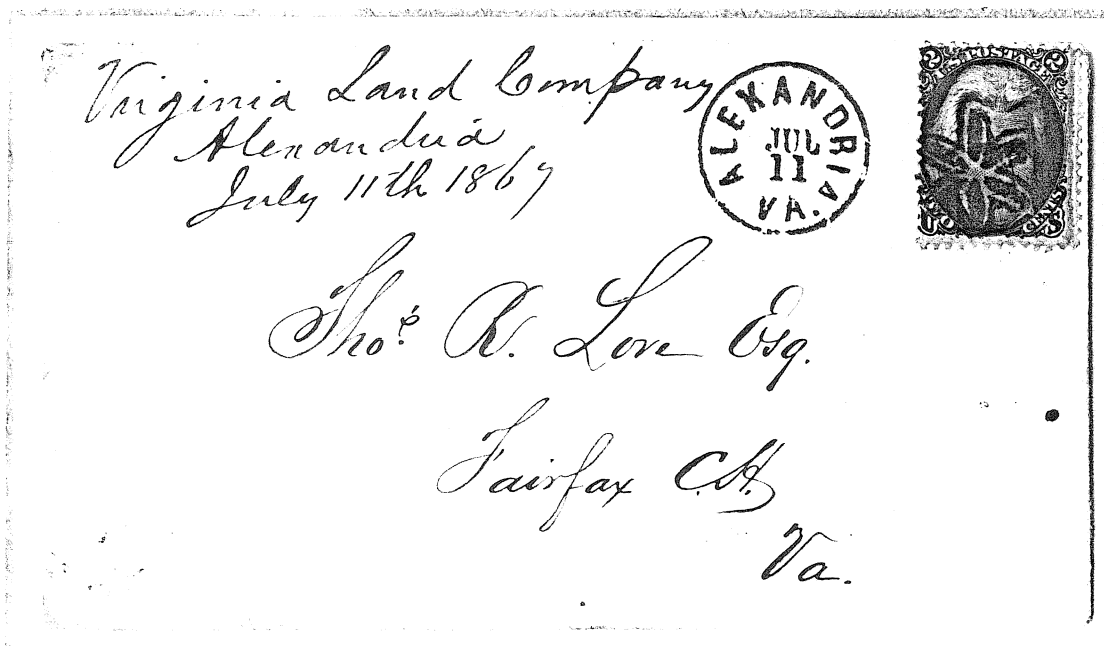 Virginia Land Company
Alexandria
July 11th 1867
ALEXANDRIA
JUL
11
VA.
2 U.S. POSTAGE 2
TWO CENTS
U S
Thos. R. Love Esq.
Fairfax C.H.
Va.